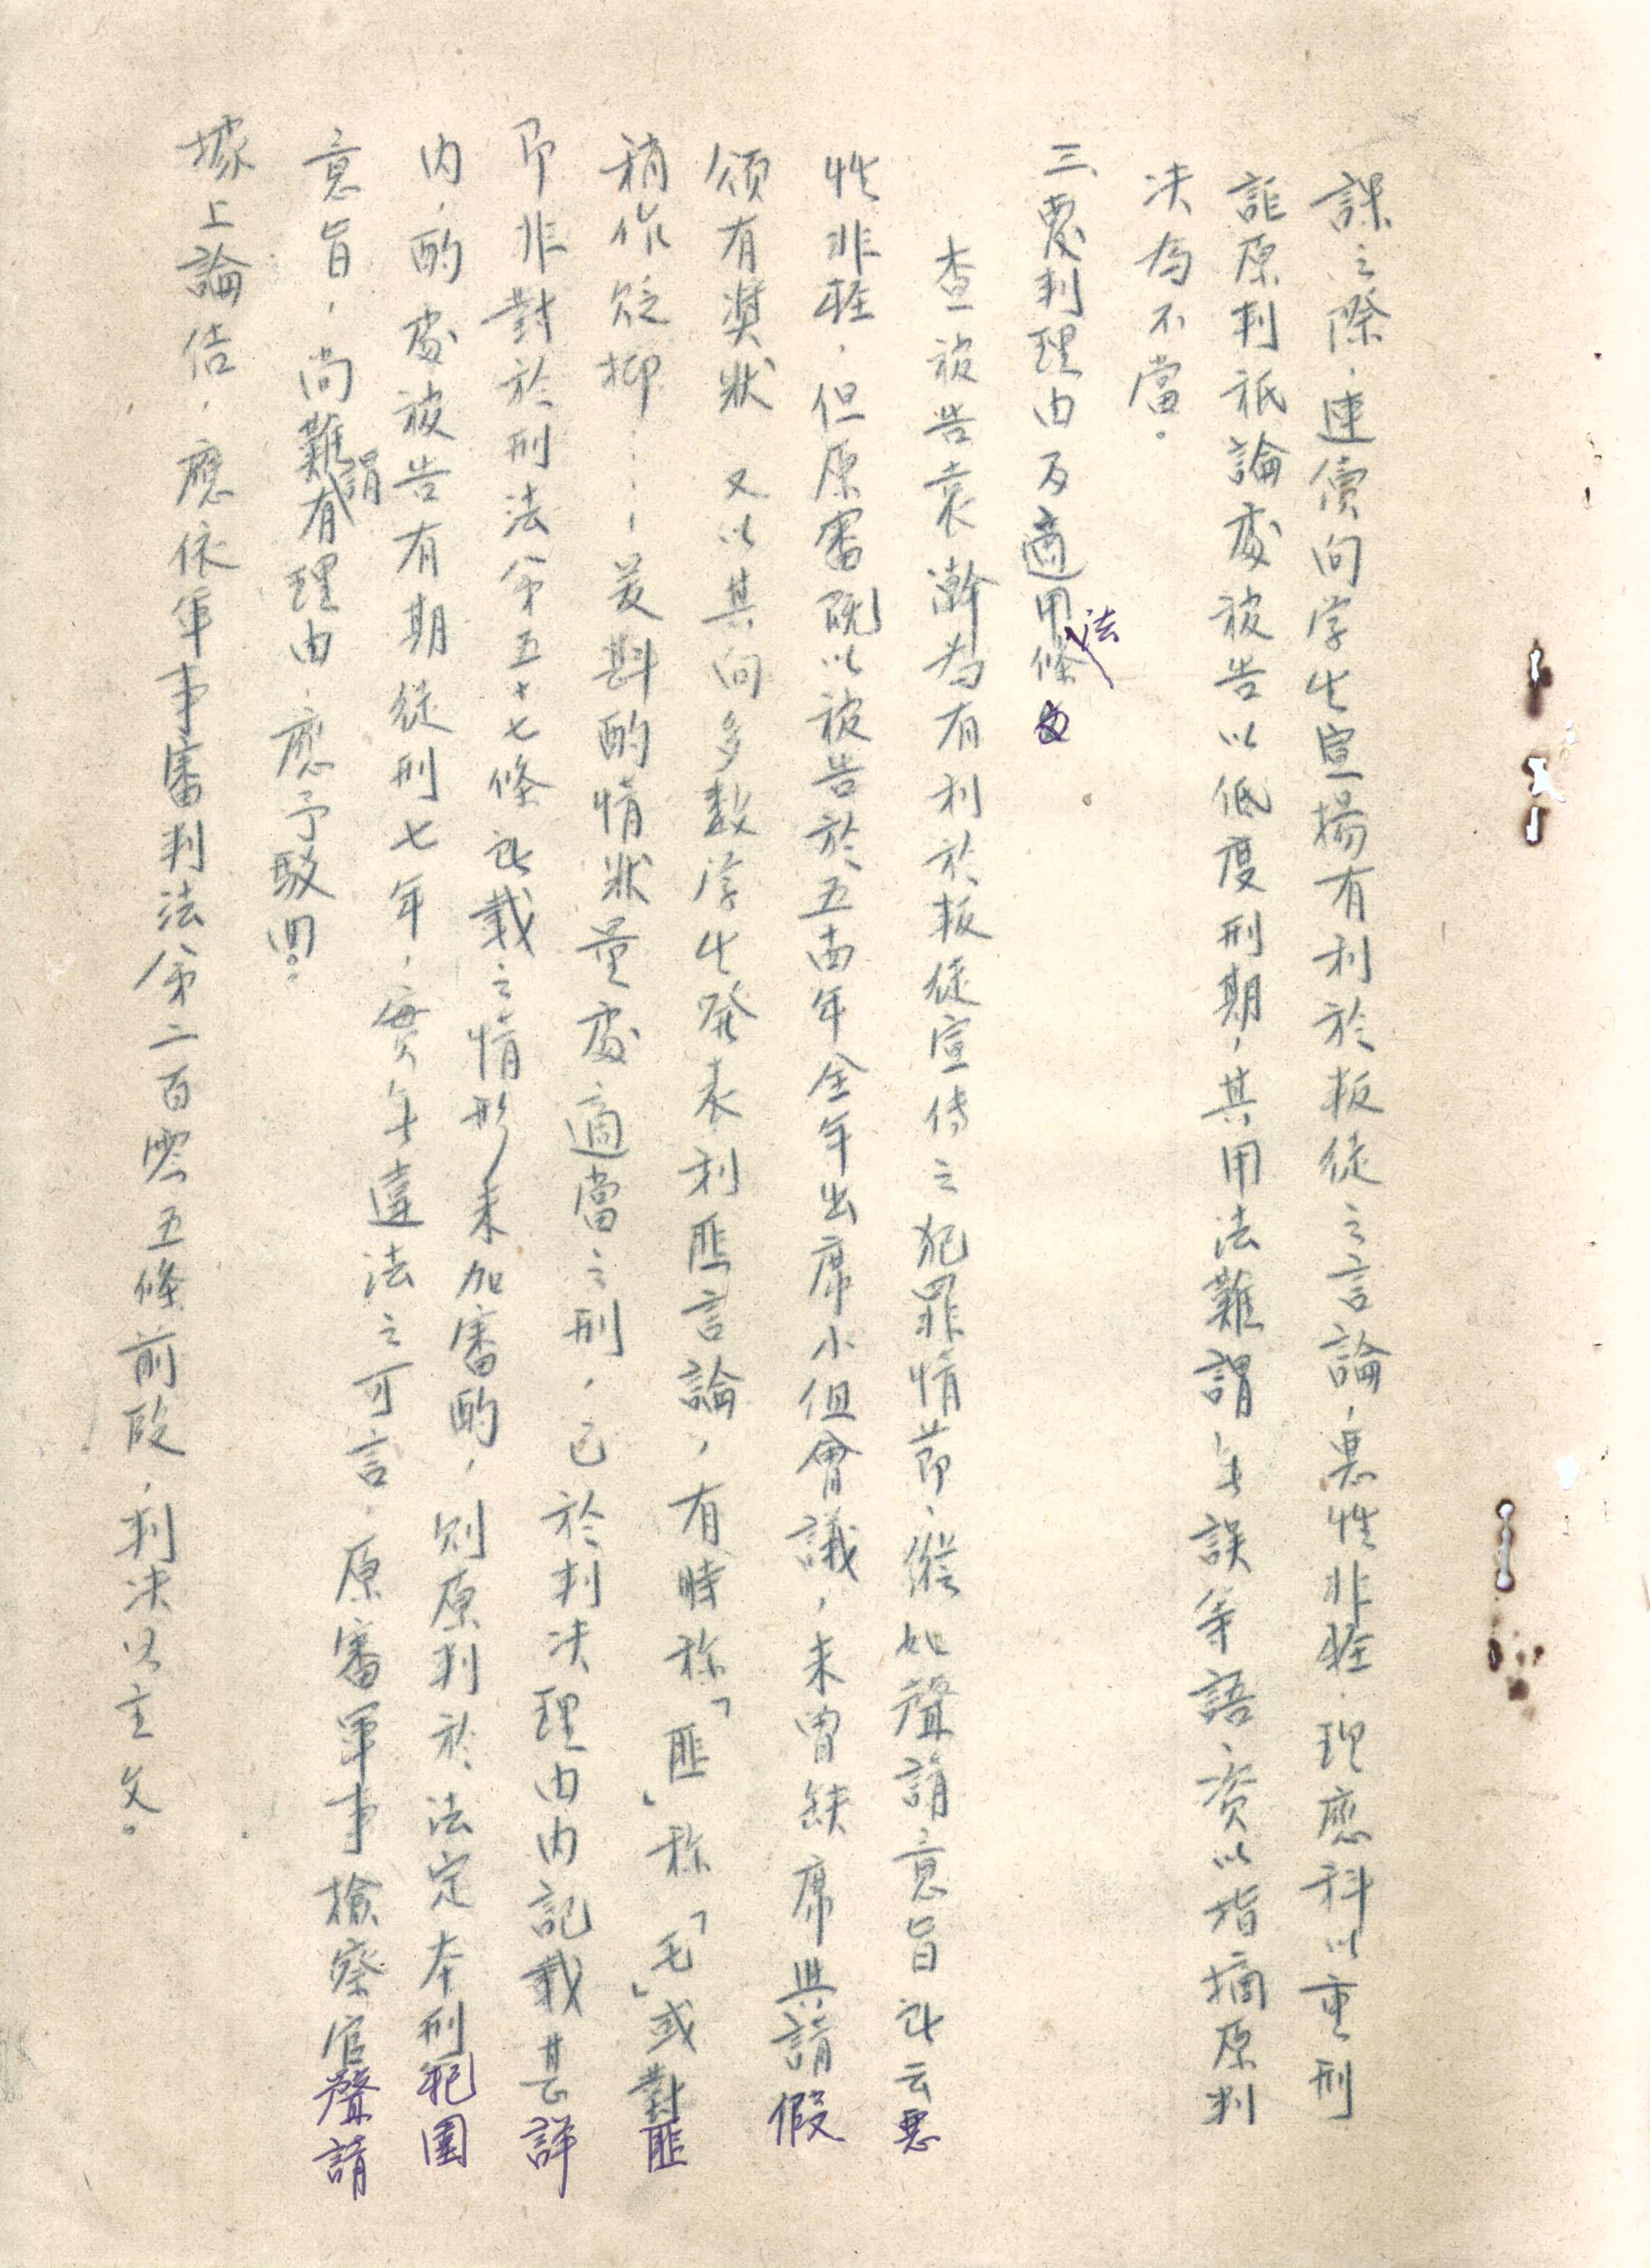 課之際，連續向学生宣揚有利於叛徒之言論，惡性非輕，理應科以重刑
詎原判祇論處被告以低度刑期，其用法難謂無誤等語，資以指摘原判
決為不當。
三、覆判理由及適用法條
查被告袁瀚為有利於叛徒宣传之犯罪情節，縱如聲請意旨所云惡
性非輕，但原審既以被告於五四年全年出席小组會議，未曾缺席與請假
頒有奬狀 又以其向多数学生発表利匪言論，有時称「匪」称「毛」或對匪
稍作貶抑……爰斟酌情狀量處適當之刑，已於判決理由内記載甚詳
即非對於刑法第五十七條所載之情形未加審酌，則原判於法定本刑範圍
内，酌處被告有期徒刑七年，實無違法之可言，原審軍事檢察官聲請
意旨，尚難謂有理由，應予駁回。
據上論结，應依軍事審判法第二百零五條前段，判決如主文。